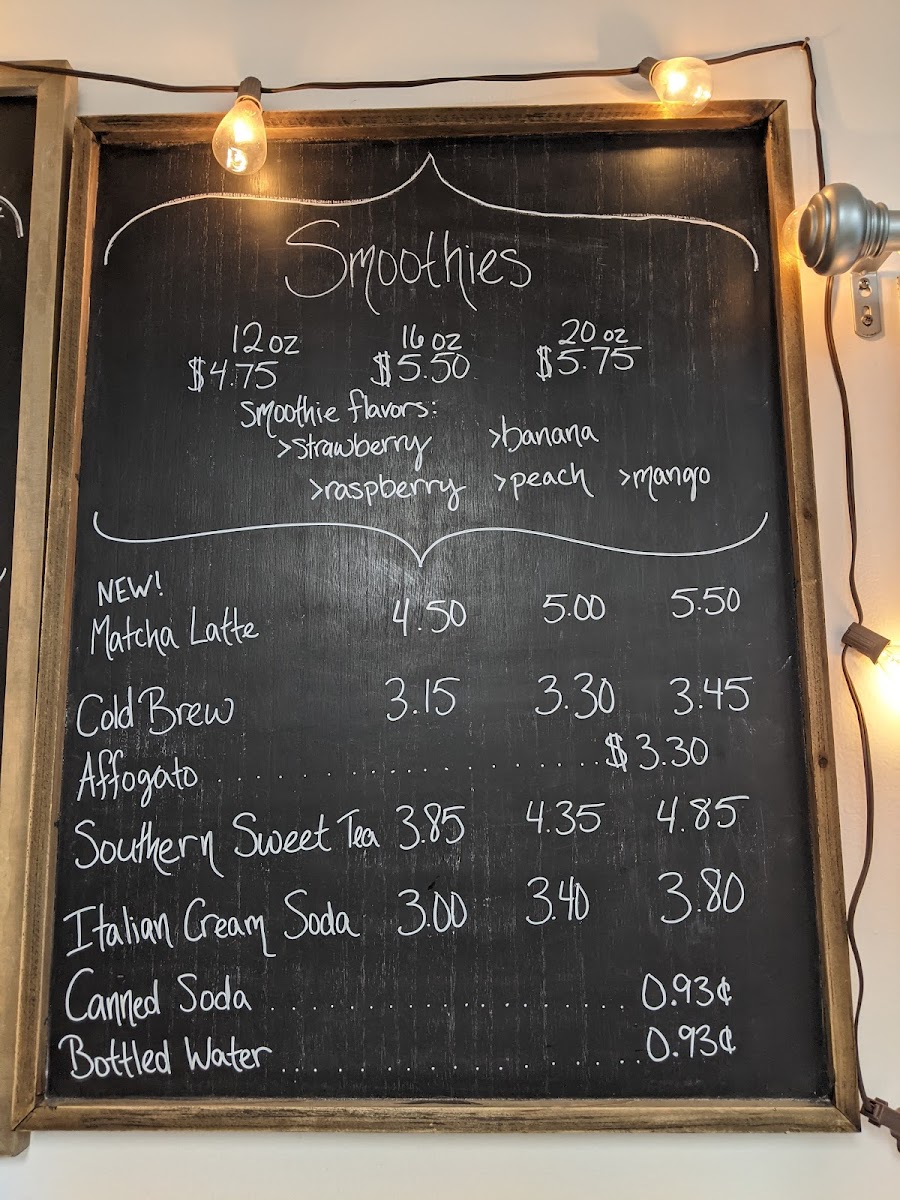 Smoothies
12 oz 16 oz 20 oz
$4.75 $5.50 $5.75
Smoothie flavors:
>strawberry >banana
>raspberry >peach >mango
NEW!
Matcha Latte 4.50 5.00 5.50
Cold Brew 3.15 3.30 3.45
Affogato ........................ $3.30
Southern Sweet Tea 3.85 4.35 4.85
Italian Cream Soda 3.00 3.40 3.80
Canned Soda ........................ 0.93¢
Bottled Water ........................ 0.93¢